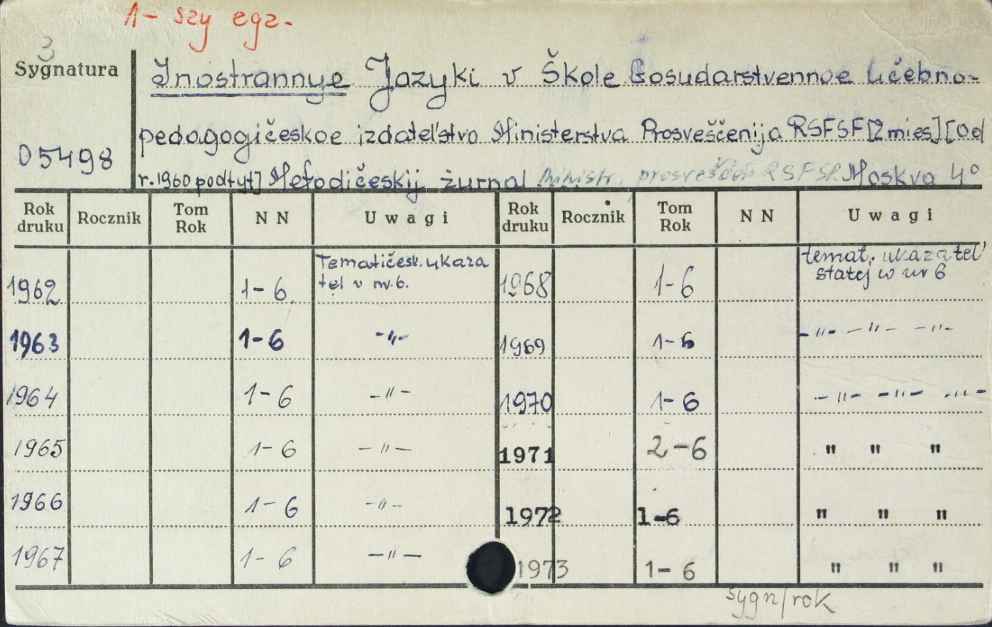 1-szy egz.
3
Sygnatura
05498
Inostrannye Jazyki v Škole Gosudarstvennoe Učebno-
pedagogičeskoe izdatel'stvo Ministerstva Prosveščenija RSFSF [2 mies] [Od
r. 1960 podtyt] Metodičeskij žurnal Ministr. prosveščen RSFSR. Moskva 4°
Rok druku Rocznik Tom Rok NN Uwagi Rok druku Rocznik Tom Rok NN Uwagi
1962 1-6 Tematičesk. ukaza
tel v nr. 6. 1968 1-6 temat. ukazatel'
statej w nr 6
1963 1-6 -"- 1969 1-6 -"- -"- -"-
1964 1-6 -"- 1970 1-6 -"- -"- -"-
1965 1-6 -"- 1971 2-6 " " "
1966 1-6 -"- 1972 1-6 " " "
1967 1-6 -"- 1973 1-6 " " "
sygn/rok